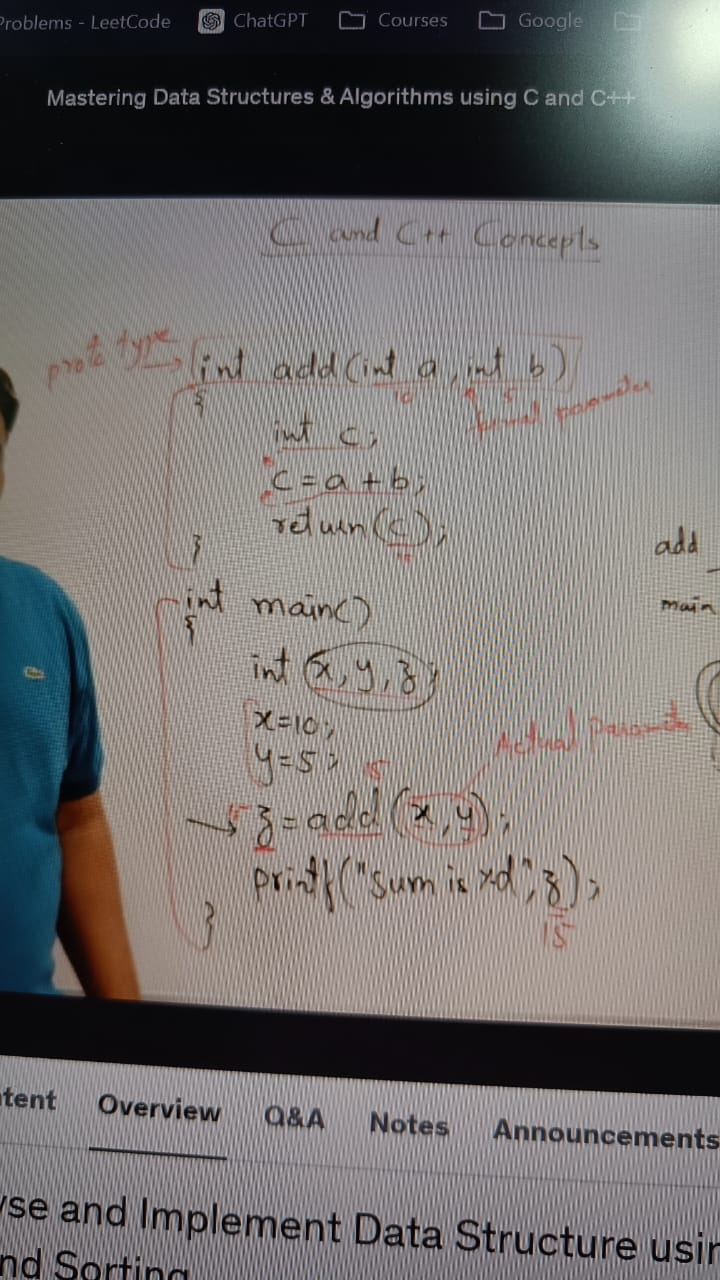 Problems - LeetCode ChatGPT Courses Google
Mastering Data Structures & Algorithms using C and C++
C and C++ Concepts
prototype
int add(int a, int b)
10 5
formal parameter
{
int c;
c=a+b;
return(c);
15
}
add
int main()
main
{
int x,y,z;
x=10;
Actual
y=5;
15
z=add(x,y);
printf("sum is %d",z);
15
}
Overview Q&A Notes Announcements
and Implement Data Structure
Sorting